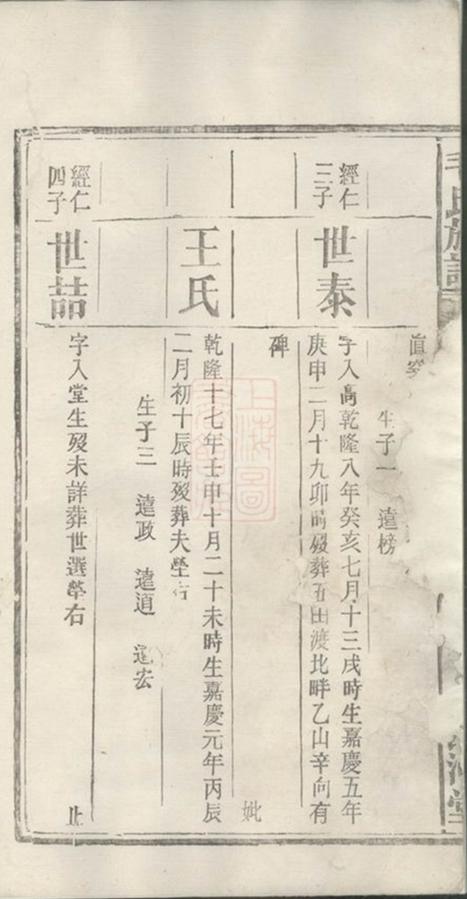 毛氏族譜
生子一 遠榜
經仁
三子
世泰
字入高乾隆八年癸亥七月十三戌時生嘉慶五年
庚申二月十九卯時歿葬石田渡北畔乙山辛向有
碑
妣
王氏
乾隆十七年壬申十月二十未時生嘉慶元年丙辰
二月初十辰時歿葬夫塋右
生子三 遠政 遠道 遠宏
經仁
四子
世喆
字入堂生歿未詳葬世選塋右
止